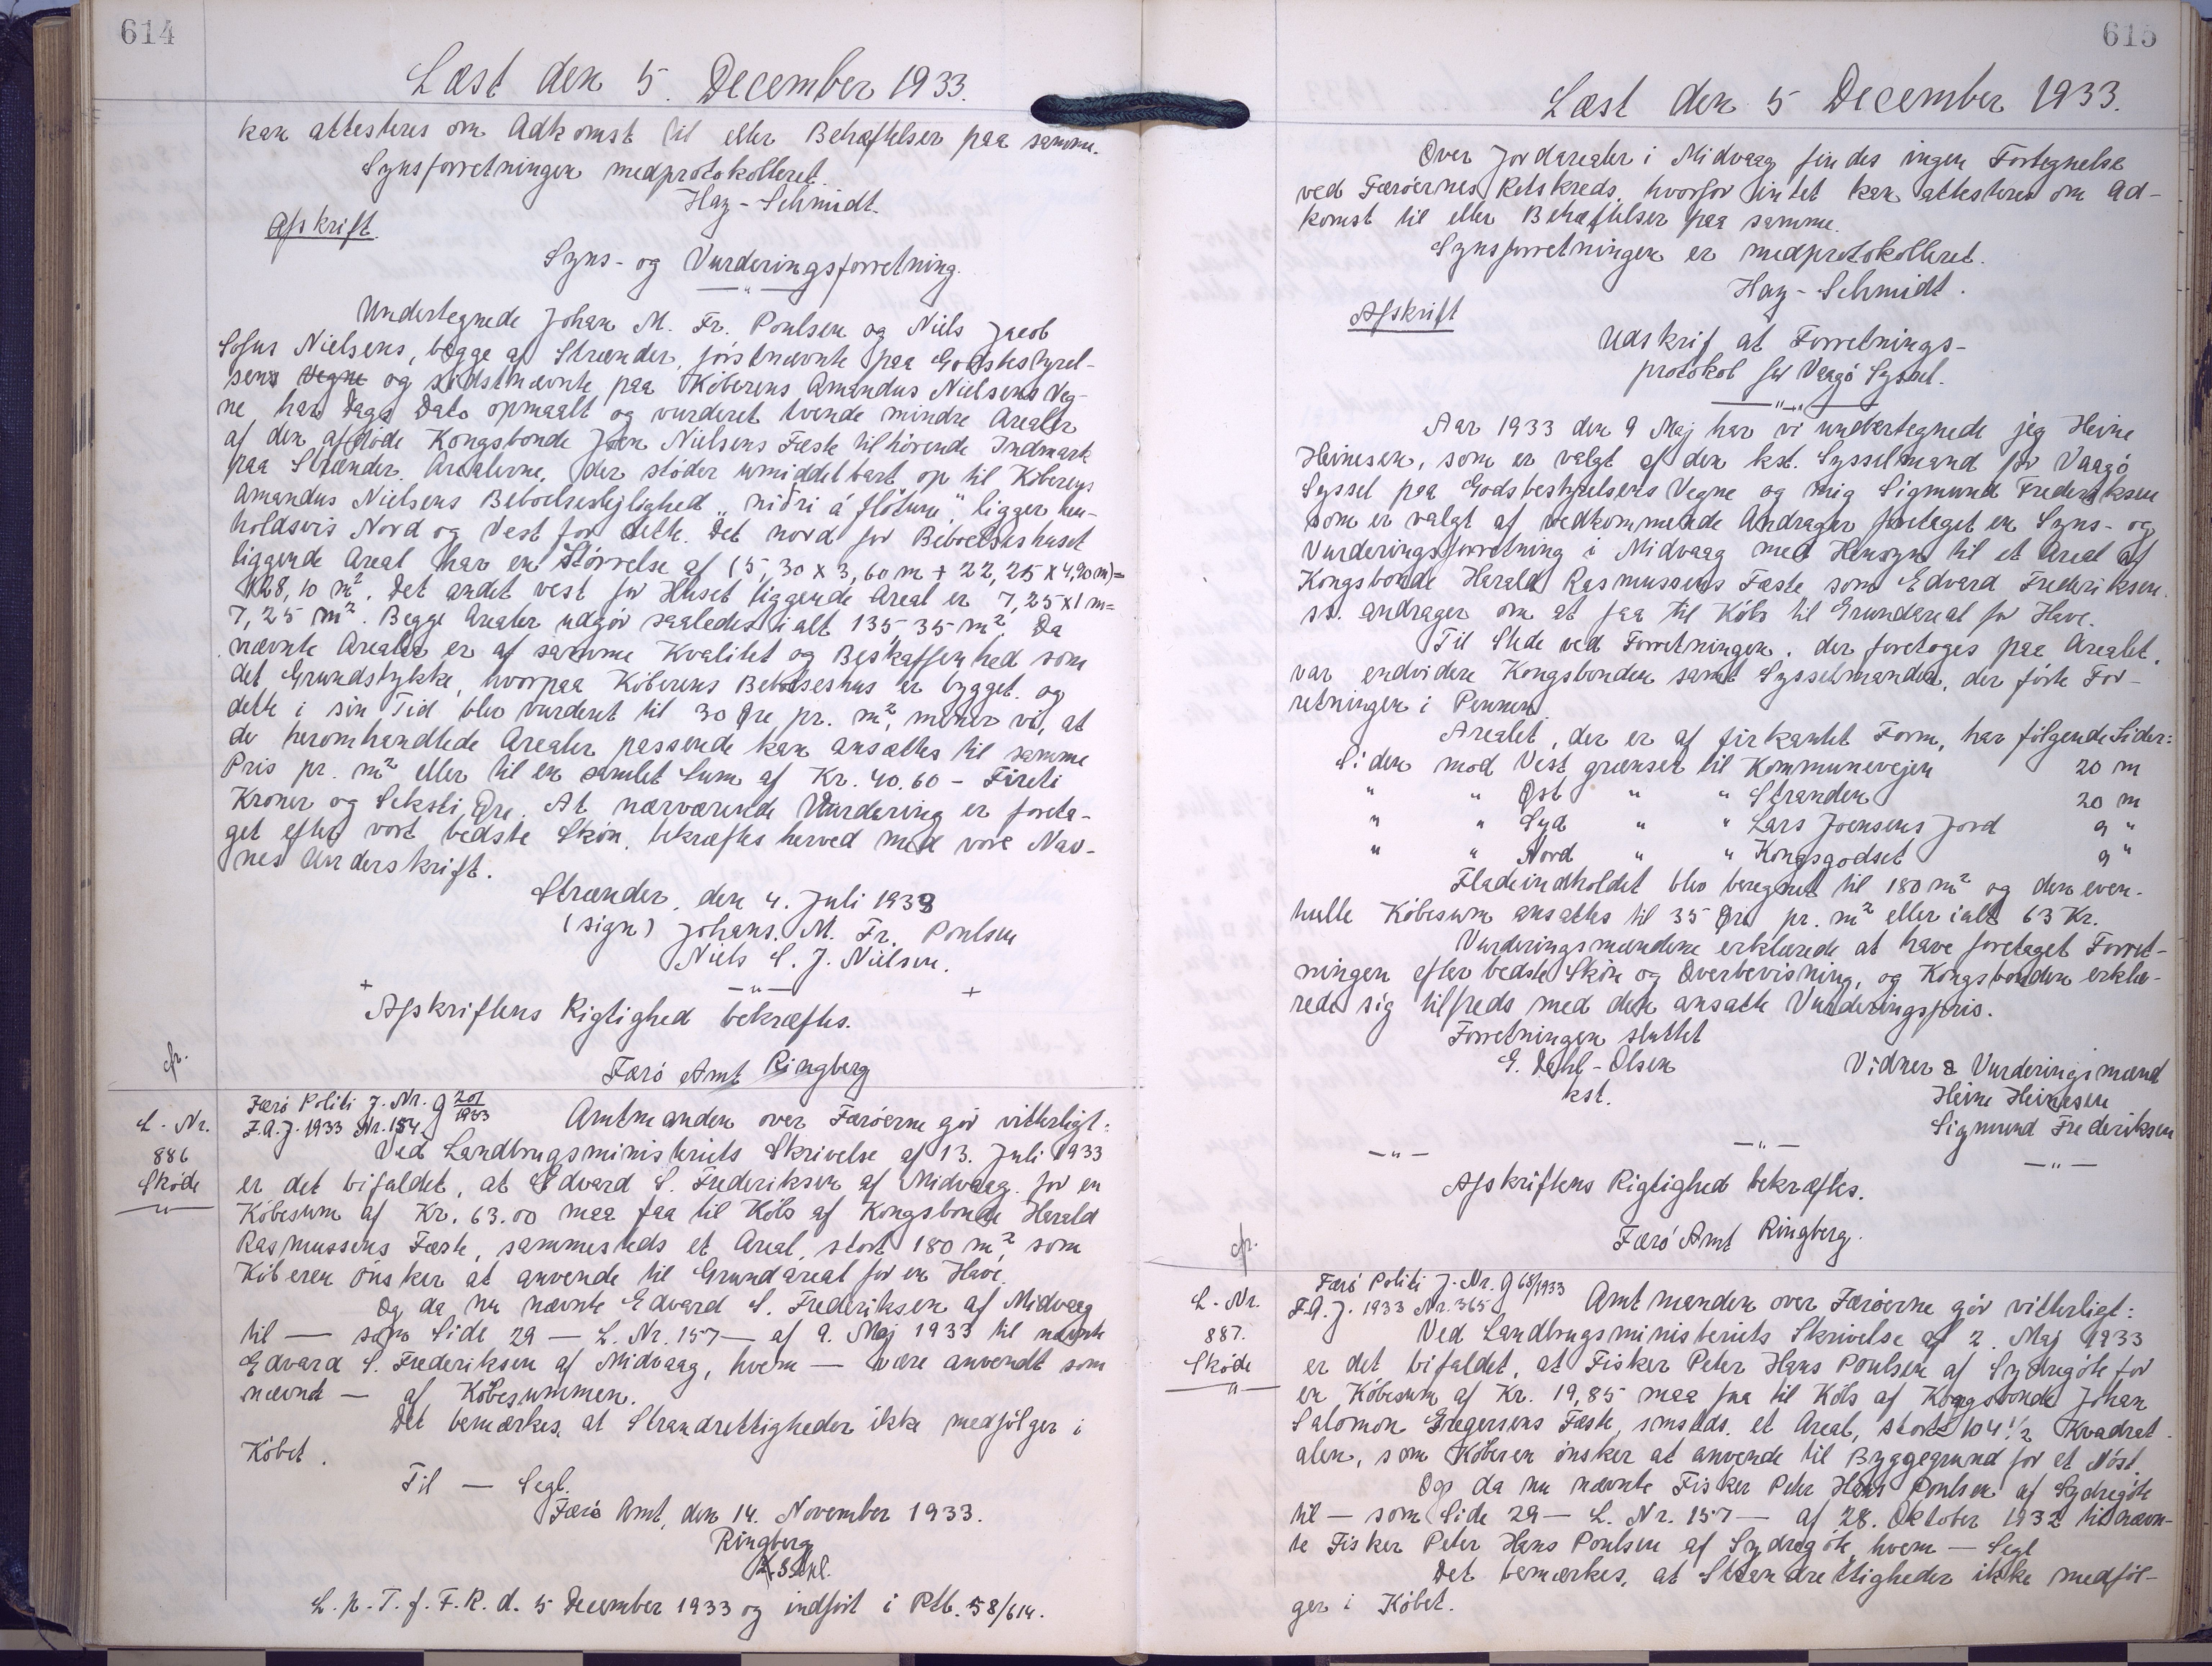 614
Læst den 5. December 1933.
kan attesteres om Adkomst til eller Behæftelser paa samme.
Synsforretningen medprotokolleret.
Hay-Schmidt.
Afskrift.
Syns- og Vurderingsforretning.
— " —
Undertegnede Johan M. Fr. Poulsen og Niels Jacob
Sofus Nielsens, begge af Strænder, førstnævnte paa Godsbestyrel-
sens Vegne og sidstnævnte paa Køberens Amandus Nielsens Veg-
ne har Dags Dato opmaalt og vurderet tvende mindre Arealer
af den afdøde Kongsbonde Joen Nielsens Fæste tilhørende Indmark
paa Strænder. Arealerne, der støder umiddelbart op til Køberens
Amandus Nielsens Beboelseslejlighed „niðri á fløtuni" ligger hen-
holdsvis Nord og Vest for dette. Det nord for Beboelseshuset
liggende Areal har en Størrelse af (5,30 x 3,60 m + 22,25 x 4,90 m) =
128,10 m². Det andet vest for Huset liggende Areal er 7,25 x 1 m =
7,25 m². Begge Arealer udgør saaledes ialt 135,35 m². Da
nævnte Arealer er af samme Kvalitet og Beskaffenhed som
det Grundstykke, hvorpaa Køberens Beboelseshus er bygget og
dette i sin Tid blev vurderet til 30 Øre pr. m², mener vi, at
de heromhandlede Arealer passende kan ansættes til samme
Pris pr. m² eller til en samlet Sum af Kr. 40.60 - Fireti
Kroner og Seksti Øre. At nærværende Vurdering er foreta-
get efter vort bedste Skøn, bekræftes herved med vore Nav-
nes Underskrift.
Strænder, den 4. Juli 1933
(sign) Johans. M. Fr. Poulsen
Niels S. J. Nielsen.
+ — " — +
Afskriftens Rigtighed bekræftes.
cfr.
Færø Amt Ringberg
Færø Politi J. Nr. g 201/1933
L. Nr. F.A.J. 1933 Nr. 184. Amtmanden over Færøerne gør vitterligt:
886 Ved Landbrugsministeriets Skrivelse af 13. Juli 1933
Skøde er det bifaldet, at Edvard S. Frederiksen af Midvaag for en
— " — Købesum af Kr. 63.00 maa faa til Købs af Kongsbonde Harald
Rasmussens Fæste, sammesteds et Areal, stort 180 m², som
Køberen ønsker at anvende til Grundareal for en Have.
Og da nu nævnte Edvard S. Frederiksen af Midvaag
til — som Side 29 — L. Nr. 157 — af 9. Maj 1933 til nævnte
Edvard S. Frederiksen af Midvaag, hvem — være anvendt som
nævnt — af Købesummen.
Det bemærkes, at Strandrettigheder ikke medfølger i
Købet.
Til — Segl.
Færø Amt, den 14. November 1933.
Ringberg
L. p. T. f. F. R. d. 5 December 1933 og indført i Ptb. 58/614.
615
Læst den 5 December 1933.
Over Jordarealer i Midvaag findes ingen Fortegnelse
ved Færøernes Retskreds, hvorfor intet kan attesteres om Ad-
komst til eller Behæftelser paa samme.
Synsforretningen er medprotokolleret.
Hay-Schmidt.
Afskrift
Udskrif at Forretnings-
protokol for Vaagø Syssel.
— " —
Aar 1933 den 9 Maj har vi undertegnede jeg Heine
Heinesen, som er valgt af den kst. Sysselmand for Vaagø
Syssel paa Godsbestyrelsens Vegne og mig Sigmund Frederiksen
som er valgt af vedkommende Andrager foretaget en Syns- og
Vurderingsforretning i Midvaag med Hensyn til et Areal af
Kongsbonde Harald Rasmussens Fæste som Edvard Frederiksen
ss. andrager om at faa til Købs til Grundareal for Have.
Til Stede ved Forretningen, der foretoges paa Arealet,
var endvidere Kongsbonden samt Sysselmanden, der førte For-
retningen i Pennen
Arealet, der er af firkantet Form, har følgende Sider:
Siden mod Vest grænser til Kommunevejen 20 m
" " Øst " " Stranden 20 m
" " Syd " " Lars Joensens Jord 9 "
" " Nord " " Kongsgodset 9 "
Fladeindholdet blev beregnet til 180 m² og den even-
tuelle Købesum ansættes til 35 Øre pr. m² eller ialt 63 Kr.
Vurderingsmændene erklærede at have foretaget Forret-
ningen efter bedste Skøn og Overbevisning, og Kongsbonden erklæ-
rede sig tilfreds med den ansatte Vurderingspris.
Forretningen sluttet
E. Dahl-Olsen Vidner & Vurderingsmænd
kst. Heine Heinesen
Sigmund Frederiksen
— " — — " — — " —
Afskriftens Rigtighed bekræftes.
cfr.
Færø Amt Ringberg.
Færø Politi J. Nr. g 68/1933
L. Nr. F.A.J. 1933 Nr. 365 Amtmanden over Færøerne gør vitterligt:
887. Ved Landbrugsministeriets Skrivelse af 2. Maj 1933
Skøde er det bifaldet, at Fisker Peter Hans Poulsen af Sydregøte for
— " — en Købesum af Kr. 19,85 maa faa til Købs af Kongsbonde Johan
Salomon Gregersens Fæste, smsteds. et Areal, stort 104 1/2 Kvadrat
alen, som Køberen ønsker at anvende til Byggegrund for et Nøst.
Og da nu nævnte Fisker Peter Hans Poulsen af Sydregøte
til — som Side 29 — L. Nr. 157 — af 28. Oktober 1932 til nævn-
te Fisker Peter Hans Poulsen af Sydregøte, hvem — Segl
Det bemærkes, at Strandrettigheder ikke medføl-
ger i Købet.